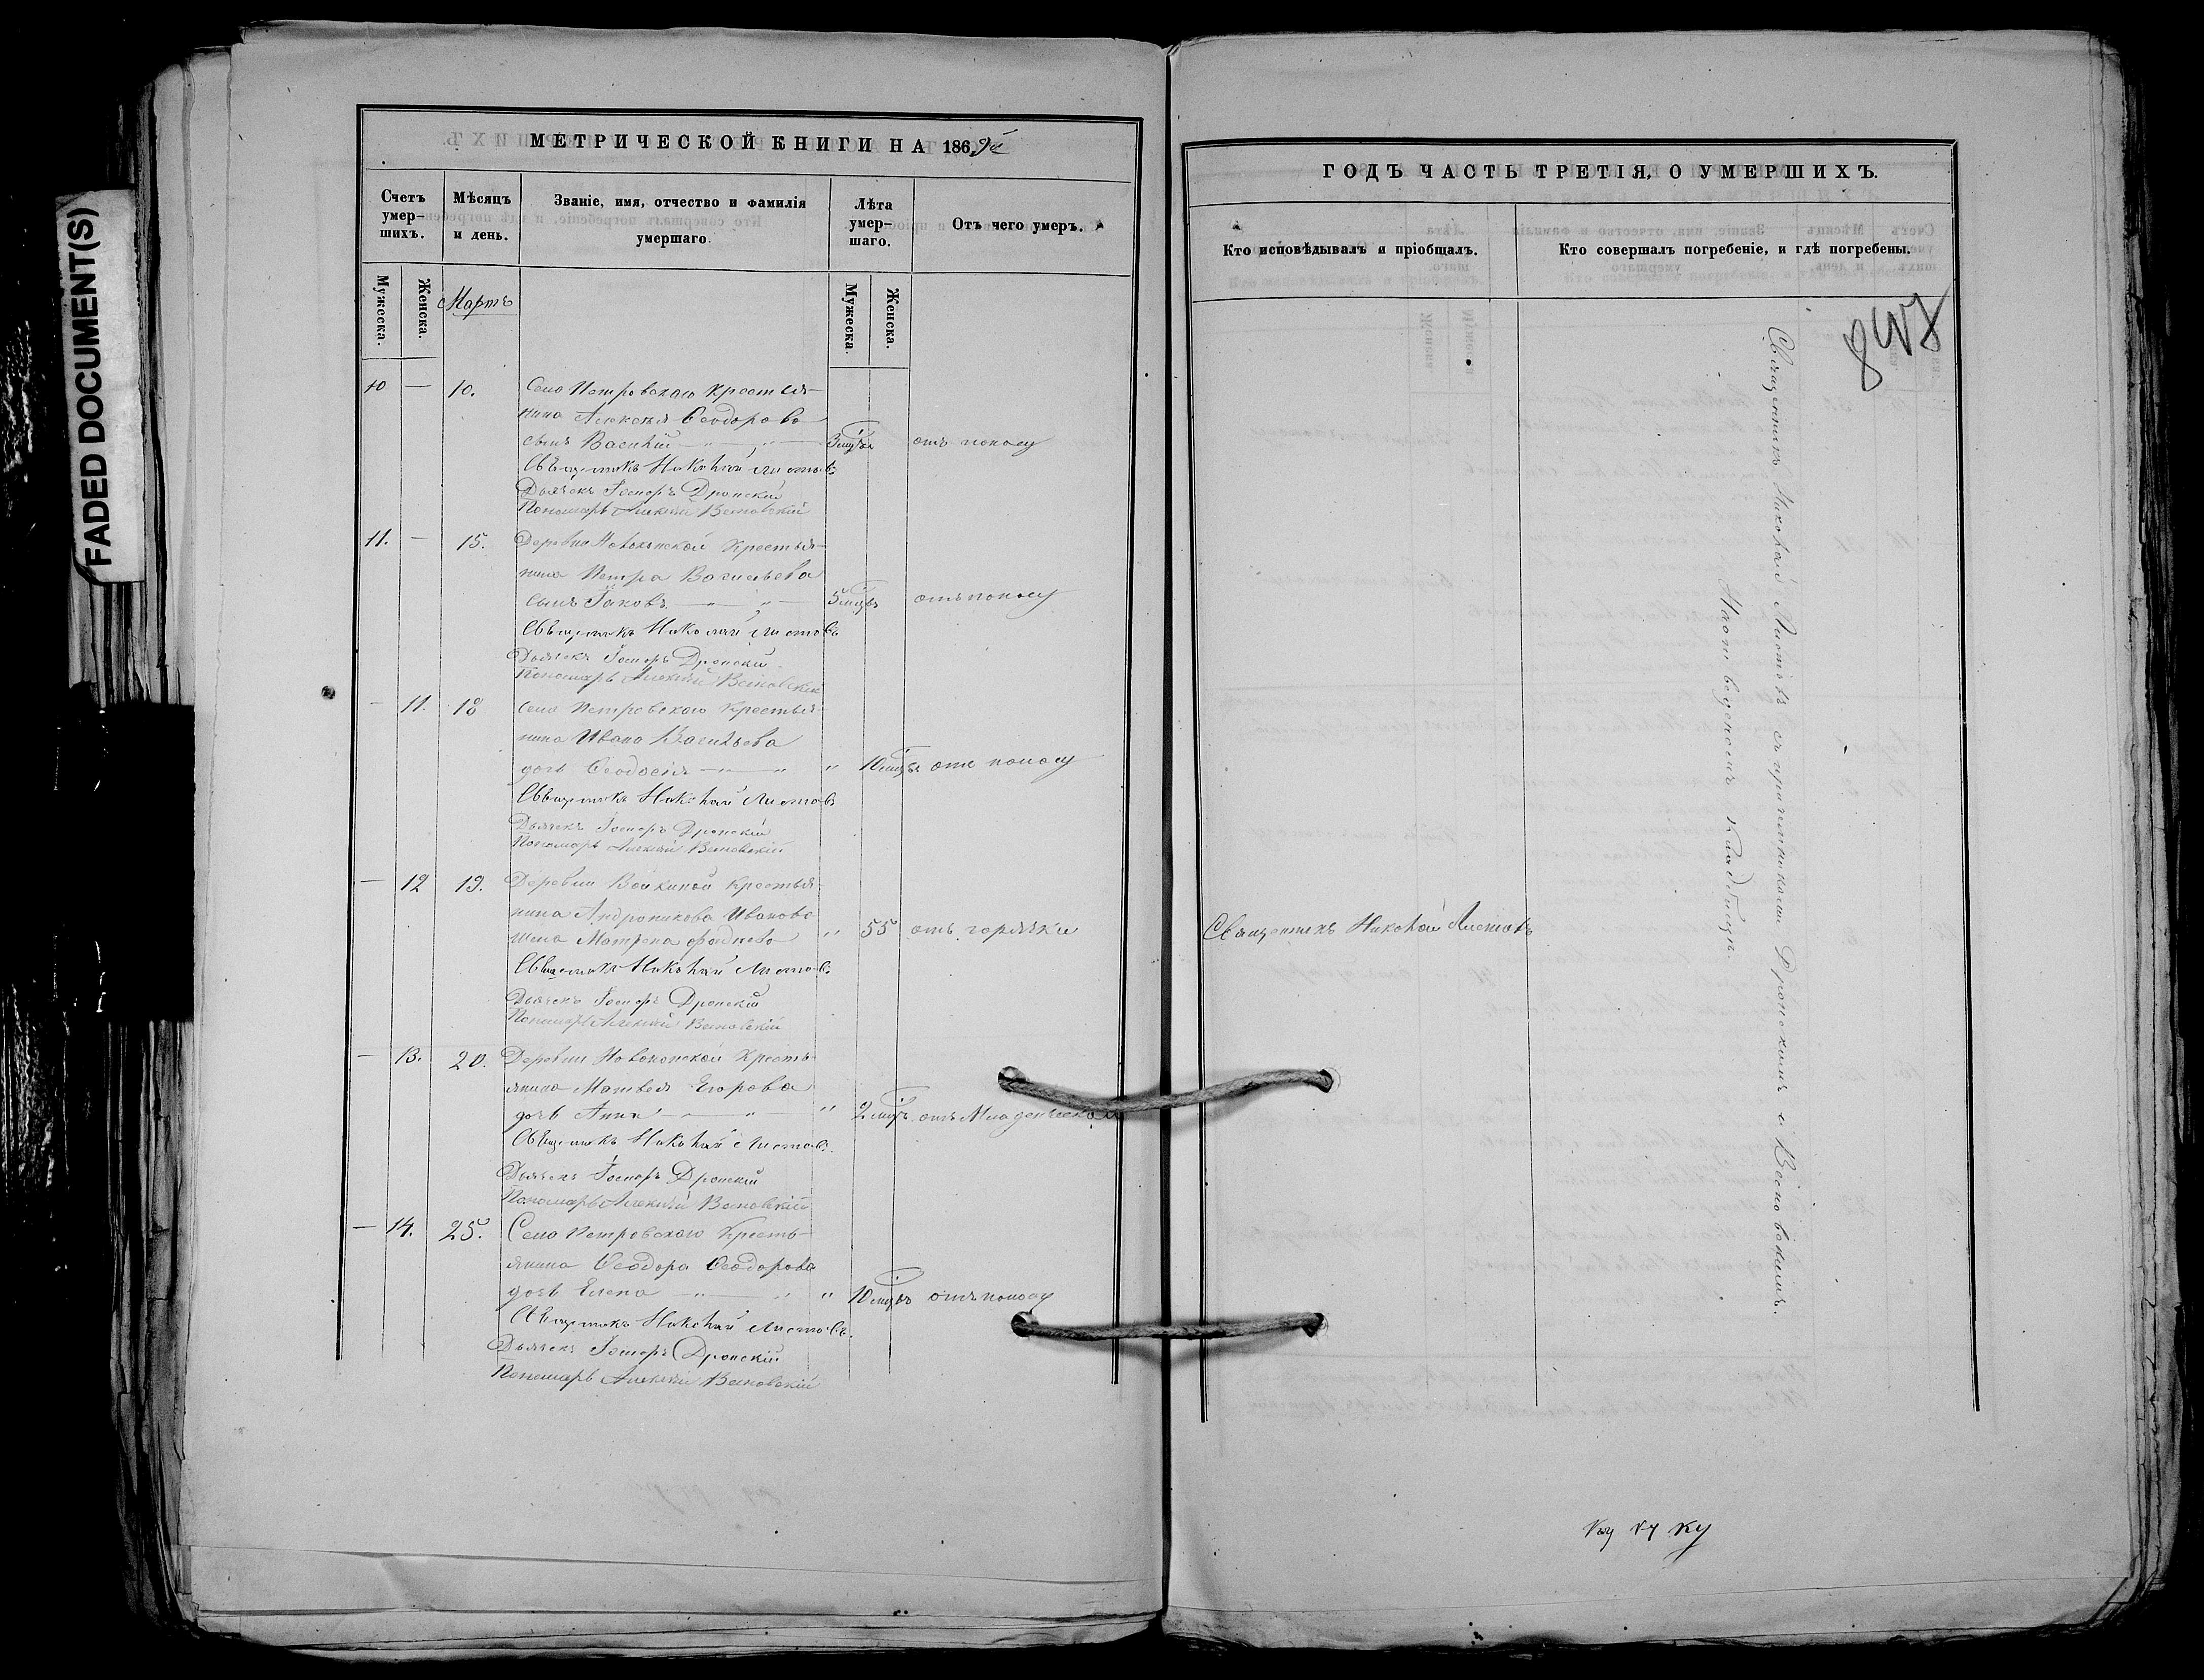 FADED DOCUMENT(S)
МЕТРИЧЕСКОЙ КНИГИ НА 1869й
Счетъ умер-шихъ.
Мѣсяцъ и день.
Званіе, имя, отчество и фамилія умершаго.
Лѣта умер-шаго.
Отъ чего умеръ.
Мужеска.
Женска.
Мартъ
Мужеска.
Женска.
10 — 10. Села Петровскаго Крестья-
нина Алексѣя Ѳеодорова
сынъ Василій 3 мцъ отъ поносу
Священникъ Николай Листовъ
Дьячекъ Дронскій
Пономарь Алексій Весновскій
11. — 15. Деревни Крестья-
нина Петра Васильева
сынъ Іаковъ 5 мцъ отъ поносу
Священникъ Николай Листовъ
Дьячекъ Дронскій
Пономарь Алексій Весновскій
— 11. 18 Села Петровскаго Крестья-
нина Ивана Васильева
дочь Ѳеодосія " 10 мцъ отъ поносу
Священникъ Николай Листовъ
Дьячекъ Дронскій
Пономарь Алексій Весновскій
— 12 19. Деревни Крестья-
нина Иванова
жена Матрена " 55 отъ горячки
Священникъ Николай Листовъ
Дьячекъ Дронскій
Пономарь Алексій Весновскій
— 13. 20. Деревни Кресть-
янина Матвея Егорова
дочь Анна " 2 мцъ отъ Младенческой
Священникъ Николай Листовъ
Дьячекъ Дронскій
Пономарь Алексій Весновскій
— 14. 25. Села Петровскаго Кресть-
янина Ѳеодора Ѳеодорова
дочь Елена " 10 мцъ отъ поносу
Священникъ Николай Листовъ
Дьячекъ Дронскій
Пономарь Алексій Весновскій
ГОДЪ ЧАСТЬ ТРЕТІЯ, О УМЕРШИХЪ.
Кто исповѣдывалъ и пріобщалъ.
Кто совершалъ погребеніе, и гдѣ погребены.
Священникъ Николай Листовъ
Священникъ Николай Листовъ съ причетниками Дронскимъ и Весновскимъ.
На отведенномъ кладбищѣ.